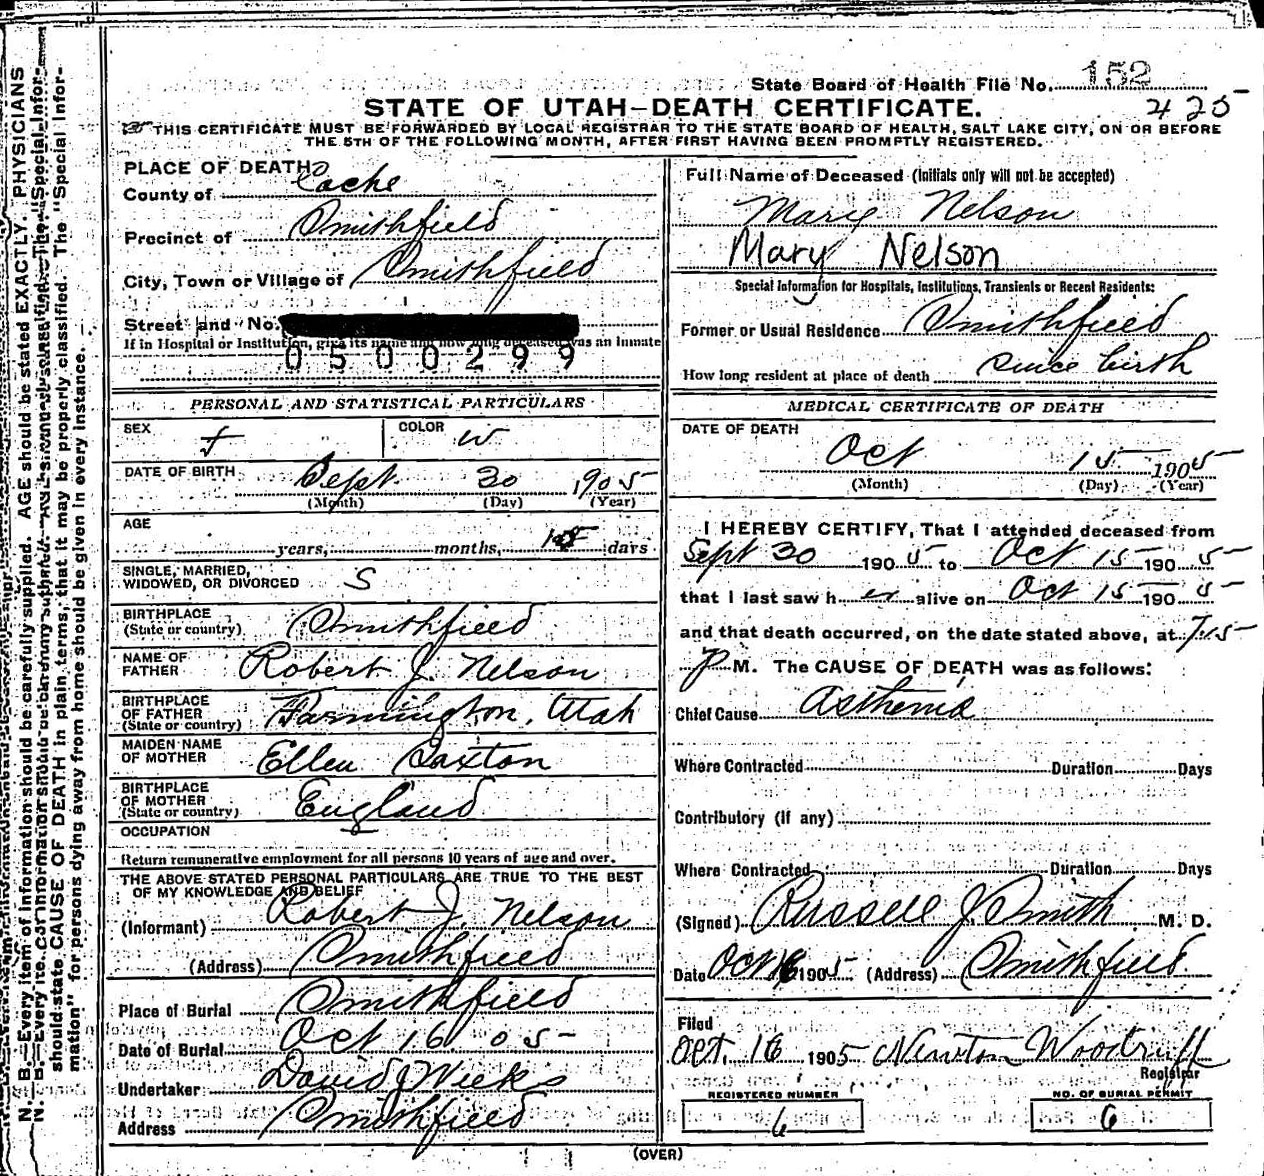 State Board of Health File No. 152
STATE OF UTAH—DEATH CERTIFICATE. 425
THIS CERTIFICATE MUST BE FORWARDED BY LOCAL REGISTRAR TO THE STATE BOARD OF HEALTH, SALT LAKE CITY, ON OR BEFORE
THE 5TH OF THE FOLLOWING MONTH, AFTER FIRST HAVING BEEN PROMPTLY REGISTERED.
PLACE OF DEATH
County of Cache
Precinct of Smithfield
City, Town or Village of Smithfield
Street and No.
If in Hospital or Institution, give its name and how long deceased was an inmate
0500299
PERSONAL AND STATISTICAL PARTICULARS
SEX f COLOR W
DATE OF BIRTH Sept. 30 1905
(Month) (Day) (Year)
AGE
years, months, 15 days
SINGLE, MARRIED,
WIDOWED, OR DIVORCED S
BIRTHPLACE
(State or country) Smithfield
NAME OF
FATHER Robert J. Nelson
BIRTHPLACE
OF FATHER
(State or country) Farmington, Utah
MAIDEN NAME
OF MOTHER Ellen Saxton
BIRTHPLACE
OF MOTHER
(State or country) England
OCCUPATION
Return remunerative employment for all persons 10 years of age and over.
THE ABOVE STATED PERSONAL PARTICULARS ARE TRUE TO THE BEST
OF MY KNOWLEDGE AND BELIEF
(Informant) Robert J. Nelson
(Address) Smithfield
Place of Burial Smithfield
Date of Burial Oct 16 05
Undertaker David J Weeks
Address Smithfield
Full Name of Deceased (Initials only will not be accepted)
Mary Nelson
Mary Nelson
Special Information for Hospitals, Institutions, Transients or Recent Residents:
Former or Usual Residence Smithfield
How long resident at place of death since birth
MEDICAL CERTIFICATE OF DEATH
DATE OF DEATH
Oct 15 1905
(Month) (Day) (Year)
I HEREBY CERTIFY, That I attended deceased from
Sept 30 1905 to Oct 15 1905
that I last saw her alive on Oct 15 1905
and that death occurred, on the date stated above, at 7.15
P M. The CAUSE OF DEATH was as follows:
Chief Cause Asthenia
Where Contracted Duration Days
Contributory (if any)
Where Contracted Duration Days
(Signed) Russell J. Smith M. D.
Date Oct 16 1905 (Address) Smithfield
Filed
Oct. 16 1905 Newton Woodruff
Registrar
REGISTERED NUMBER NO. OF BURIAL PERMIT
6 6
(OVER)
N. B.—Every item of information should be carefully supplied. AGE should be stated EXACTLY. PHYSICIANS
should state CAUSE OF DEATH in plain terms, that it may be properly classified. The "Special Infor-
mation" for persons dying away from home should be given in every instance.